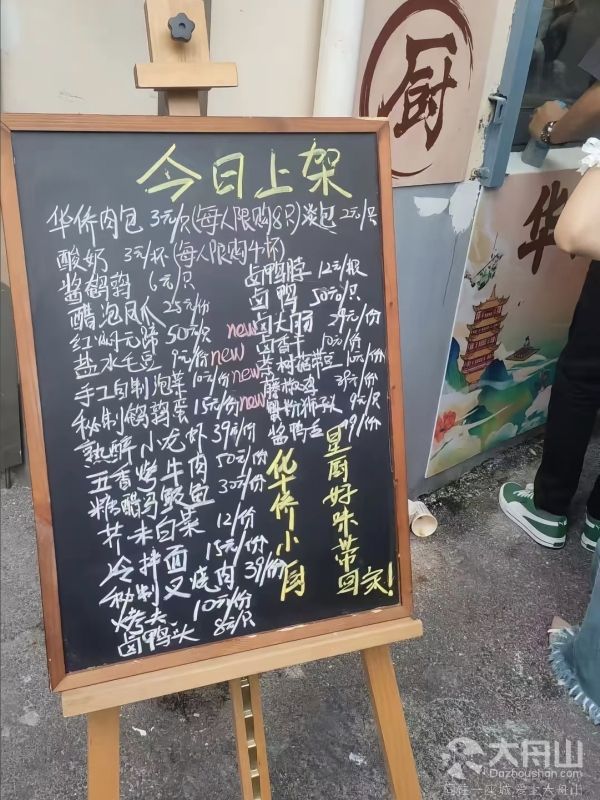 厨
华
今日上架
华侨肉包 3元/只(每人限购8只) 淡包 2元/只
酸奶 3元/杯(每人限购4杯)
酱鹌鹑 6元/只
醋泡凤爪 25元/份
红焖元蹄 50元/只
盐水毛豆 9元/份
手工自制泡菜 10元/份
秘制鹌鹑蛋 15元/份
熟醉小龙虾 39元/份
五香烤牛肉 50元/份
糖醋马鲛鱼 30元/份
芥末白菜 12/份
冷拌面 15元/份
秘制叉烧肉 39/份
烤夫 10元/份
卤鸭头 8元/只
卤鸭脖 12元/根
卤鸭 50元/只
new 卤大肠 29元/份
new 卤香干 10元/份
new 茶树菇带豆 10元/份
new 藤椒鸡 39元/份
蟹粉狮子头 9元/只
酱鸭舌 /份
华侨小厨
星厨好味带回家!
大舟山
Dazhoushan.com
同在一座城 爱上大舟山